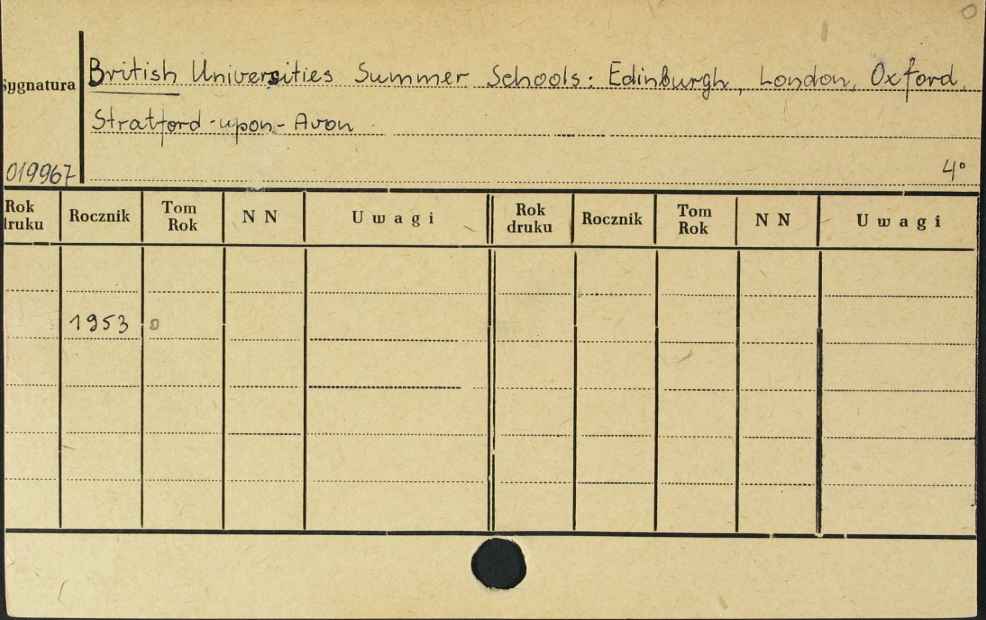 British Universities Summer Schools: Edinburgh, London, Oxford,
Sygnatura
Stratford-upon-Avon
019967
4°
Rok druku Rocznik Tom Rok N N Uwagi Rok druku Rocznik Tom Rok N N Uwagi
1953